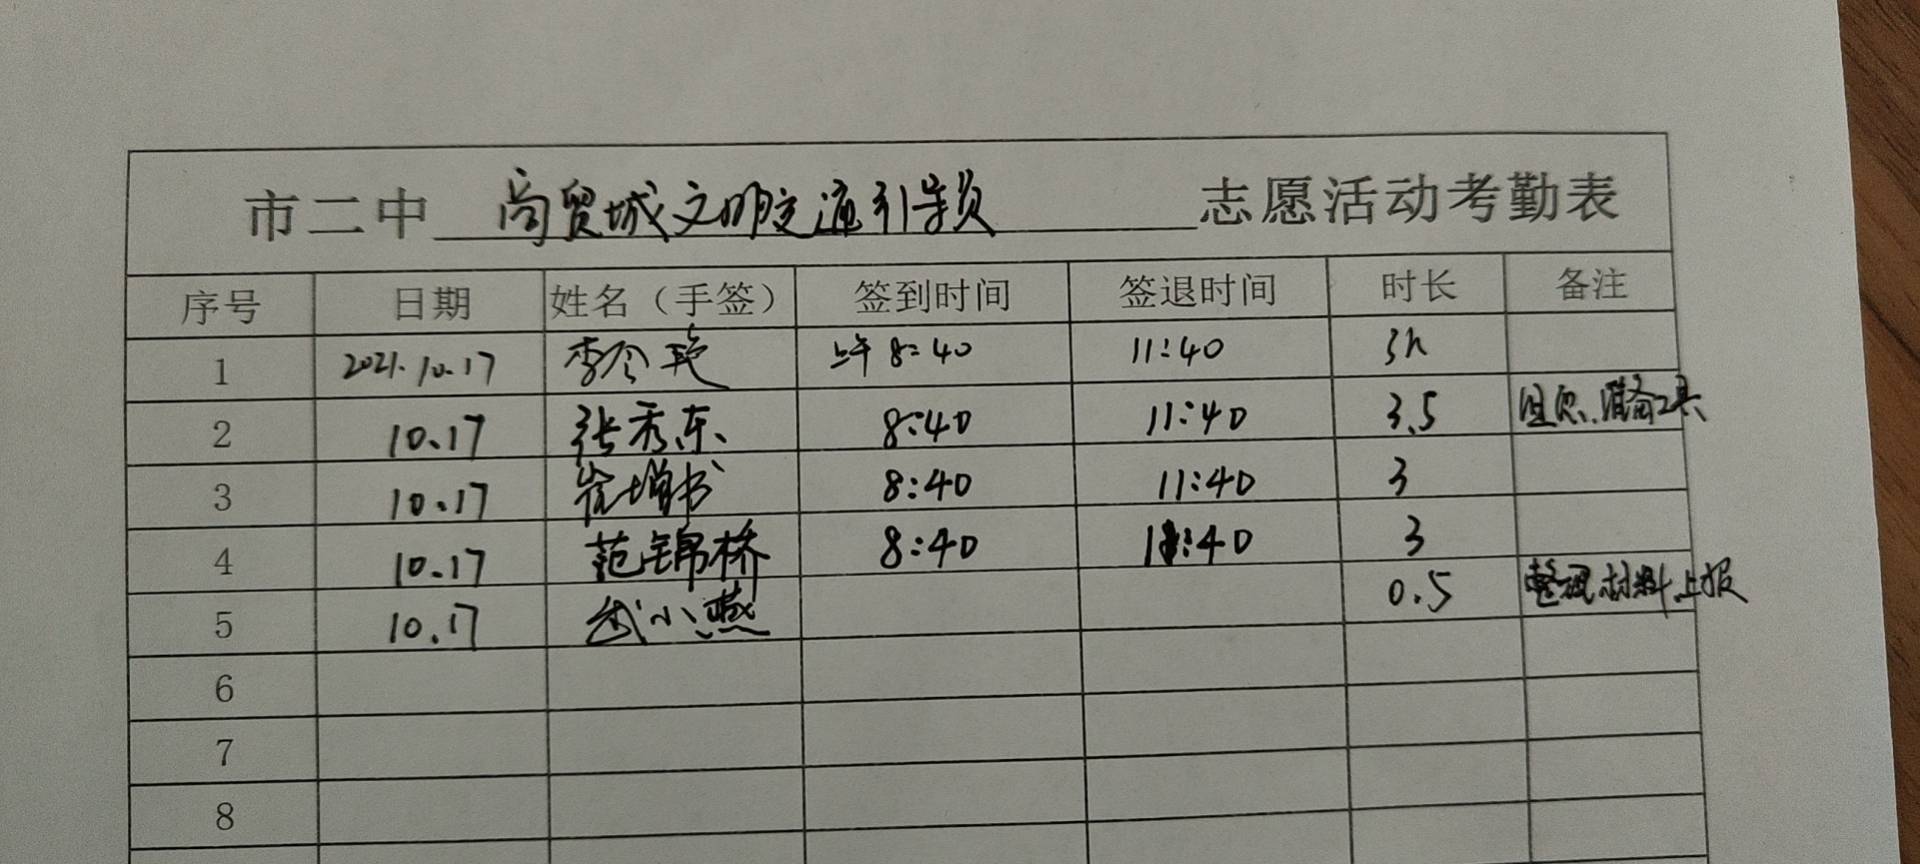 市二中 商贸城文明交通引导员 志愿活动考勤表
序号 日期 姓名（手签） 签到时间 签退时间 时长 备注
1 2021.10.17 李令艳 上午 8:40 11:40 3h
2 10.17 张秀东 8:40 11:40 3.5 准备工具
3 10.17 徐增书 8:40 11:40 3
4 10.17 范锦桥 8:40 11:40 3
5 10.17 武小燕 0.5 整理材料上报
6
7
8